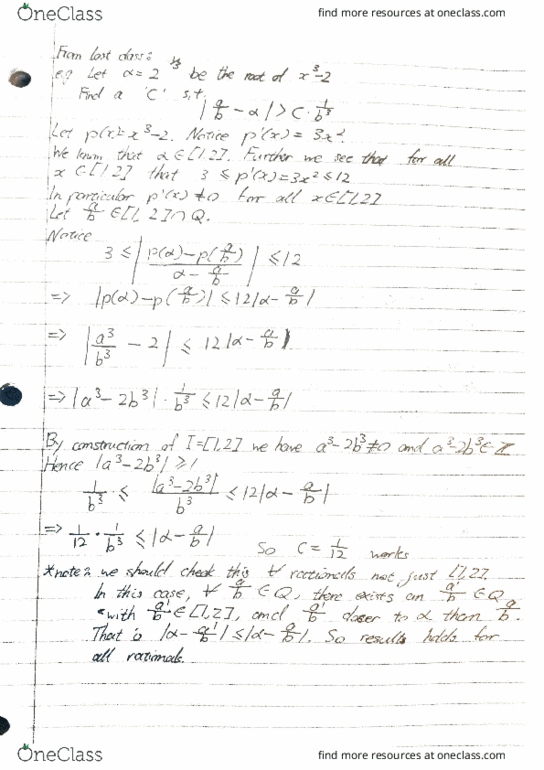 OneClass
find more resources at oneclass.com
From last class:
e.g Let α = 2^{1/3} be the root of x³-2
Find a 'C' s.t.
|a/b - α| > C · 1/b³
Let p(x) = x³-2. Notice p'(x) = 3x².
We know that α ∈ [1,2]. Further we see that for all
x ∈ [1,2] that 3 ≤ p'(x) = 3x² ≤ 12
In particular p'(x) ≠ 0 for all x ∈ [1,2]
Let a/b ∈ [1,2] ∩ Q.
Notice
3 ≤ |(p(α) - p(a/b))/(α - a/b)| ≤ 12
=> |p(α) - p(a/b)| ≤ 12|α - a/b|
=> |a³/b³ - 2| ≤ 12|α - a/b|
=> |a³ - 2b³| · 1/b³ ≤ 12|α - a/b|
By construction of I = [1,2] we have a³-2b³ ≠ 0 and a³-2b³ ∈ Z
Hence |a³-2b³| ≥ 1
1/b³ ≤ |a³-2b³|/b³ ≤ 12|α - a/b|
=> 1/12 · 1/b³ ≤ |α - a/b|
So C = 1/12 works
*note: we should check this ∀ rationals not just [1,2].
In this case, ∀ a/b ∈ Q, there exists an a'/b ∈ Q
with a'/b ∈ [1,2], and a'/b closer to α than a/b.
That is |α - a'/b| ≤ |α - a/b|. So results holds for
all rationals.
OneClass
find more resources at oneclass.com